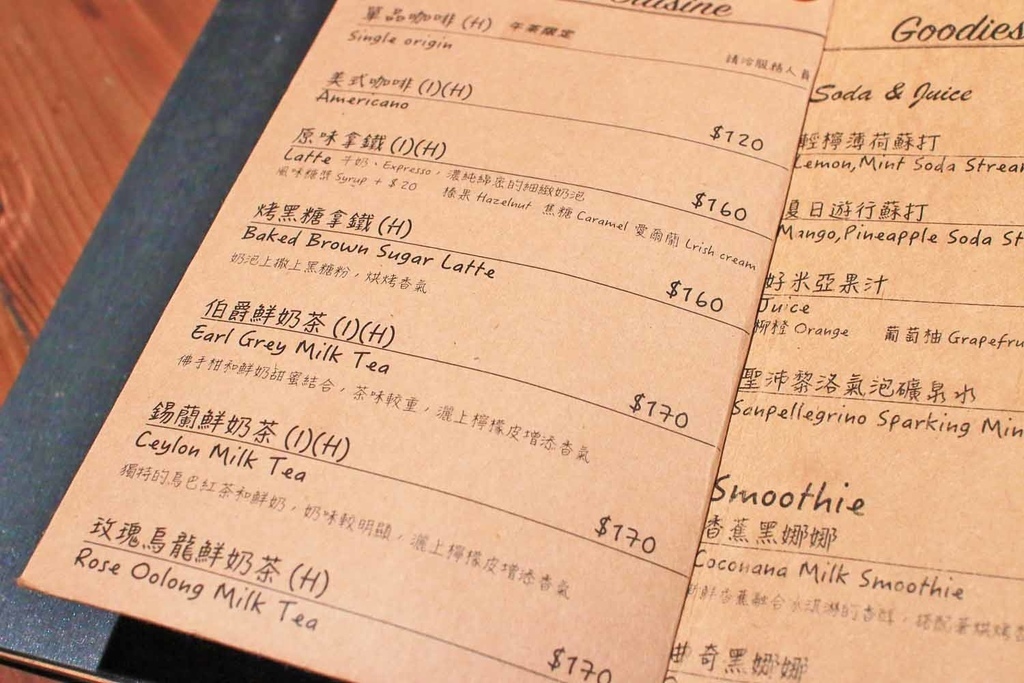 單品咖啡 (H) 午茶限定
Single origin
請洽服務人員
美式咖啡 (I)(H)
Americano
$120
原味拿鐵 (I)(H)
Latte 牛奶、Expresso，濃純綿密的細緻奶泡
風味糖漿 Syrup + $20 榛果 Hazelnut 焦糖 Caramel 愛爾蘭 Lrish cream
$160
烤黑糖拿鐵 (H)
Baked Brown Sugar Latte
奶泡上撒上黑糖粉，烘烤香氣
$160
伯爵鮮奶茶 (I)(H)
Earl Grey Milk Tea
佛手柑和鮮奶甜蜜結合，茶味較重，灑上檸檬皮增添香氣
$170
錫蘭鮮奶茶 (I)(H)
Ceylon Milk Tea
獨特的烏巴紅茶和鮮奶，奶味較明顯，灑上檸檬皮增添香氣
$170
玫瑰烏龍鮮奶茶 (H)
Rose Oolong Milk Tea
$170
Goodies
Soda & Juice
輕檸薄荷蘇打
Lemon,Mint Soda
夏日遊行蘇打
Mango,Pineapple Soda
好米亞果汁
Juice
柳橙 Orange 葡萄柚
聖沛黎洛氣泡礦泉水
Sanpellegrino Sparking
Smoothie
香蕉黑娜娜
Coconana Milk Smoothie
新鮮香蕉融合冰淇淋的香醇，搭配著烘烤
曲奇黑娜娜